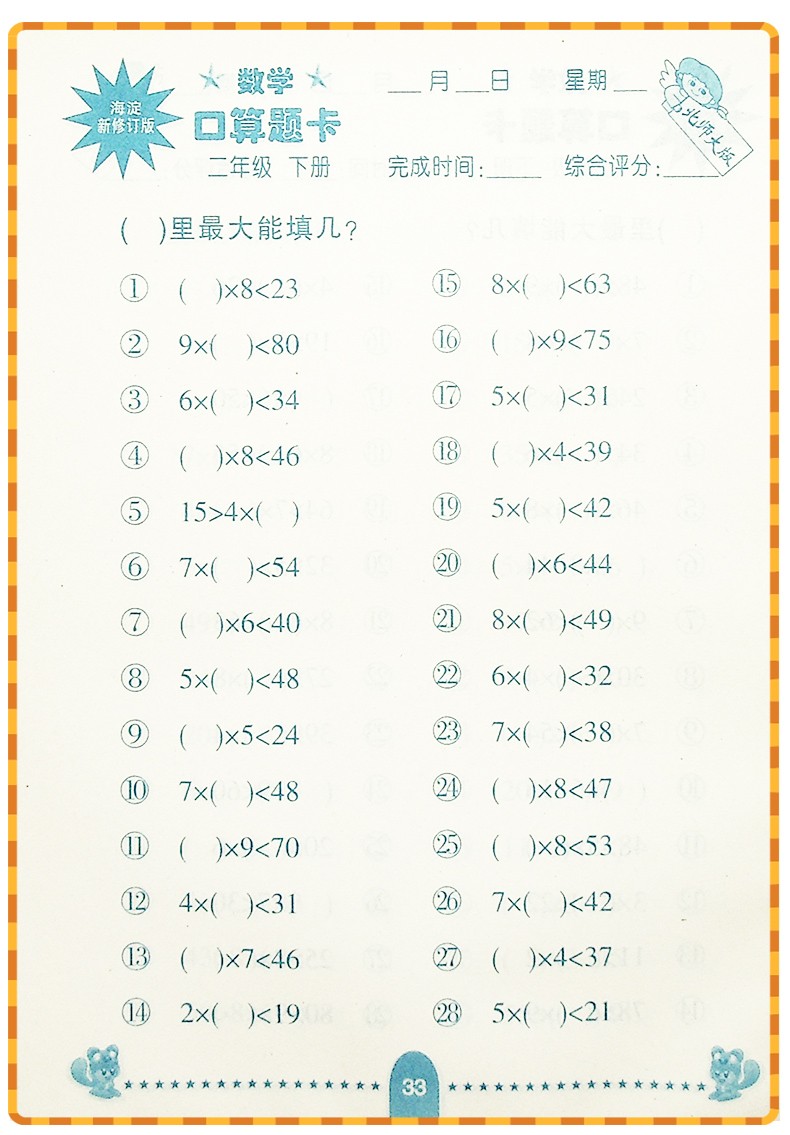 海淀
新修订版
数学
口算题卡
二年级 下册
___月___日 星期___
完成时间:_____ 综合评分:_____
北师大版
( )里最大能填几?
① ( )×8<23
② 9×( )<80
③ 6×( )<34
④ ( )×8<46
⑤ 15>4×( )
⑥ 7×( )<54
⑦ ( )×6<40
⑧ 5×( )<48
⑨ ( )×5<24
⑩ 7×( )<48
⑪ ( )×9<70
⑫ 4×( )<31
⑬ ( )×7<46
⑭ 2×( )<19
⑮ 8×( )<63
⑯ ( )×9<75
⑰ 5×( )<31
⑱ ( )×4<39
⑲ 5×( )<42
⑳ ( )×6<44
㉑ 8×( )<49
㉒ 6×( )<32
㉓ 7×( )<38
㉔ ( )×8<47
㉕ ( )×8<53
㉖ 7×( )<42
㉗ ( )×4<37
㉘ 5×( )<21
33